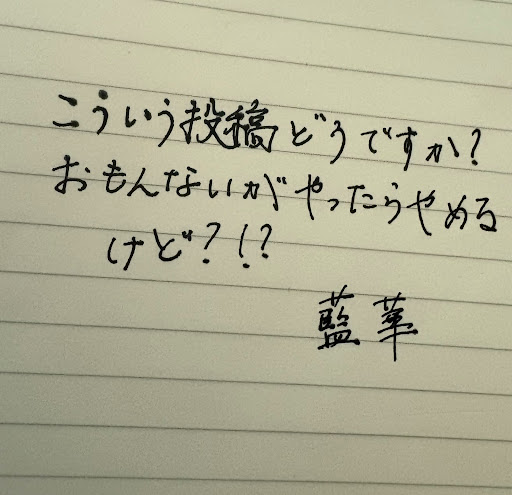 こういう投稿どうですか?
おもんないがやったらやめる
けど?!?
藍華